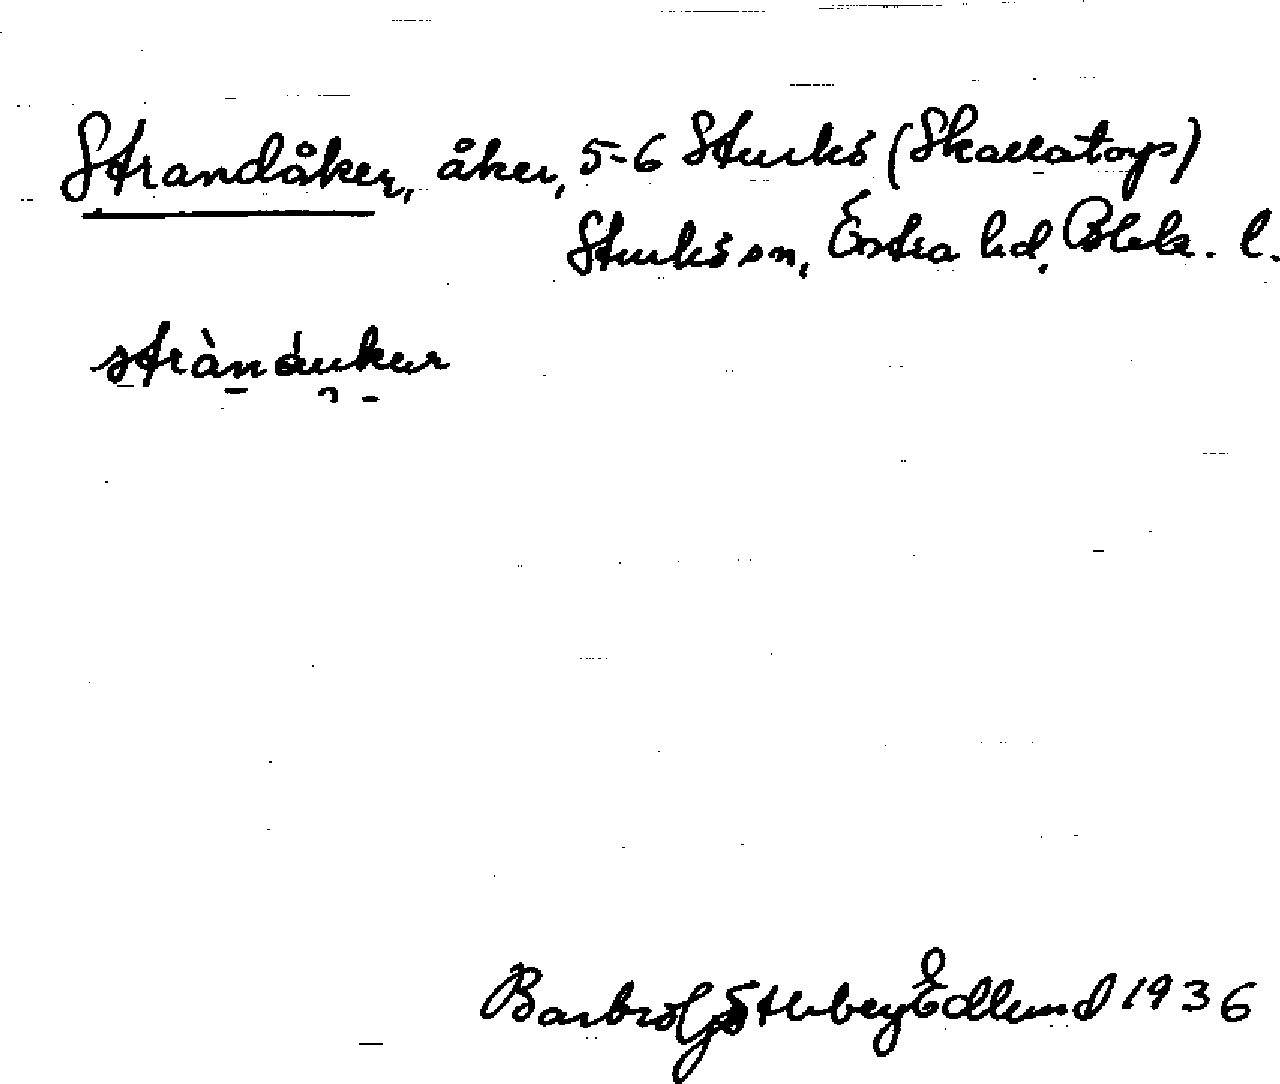 Strandåker, åker, 5-6 Sturkö (Skallatorp)
Sturkö sn, Östra hd, Blek. l.
stràndukur
Barbro Edlund 1936